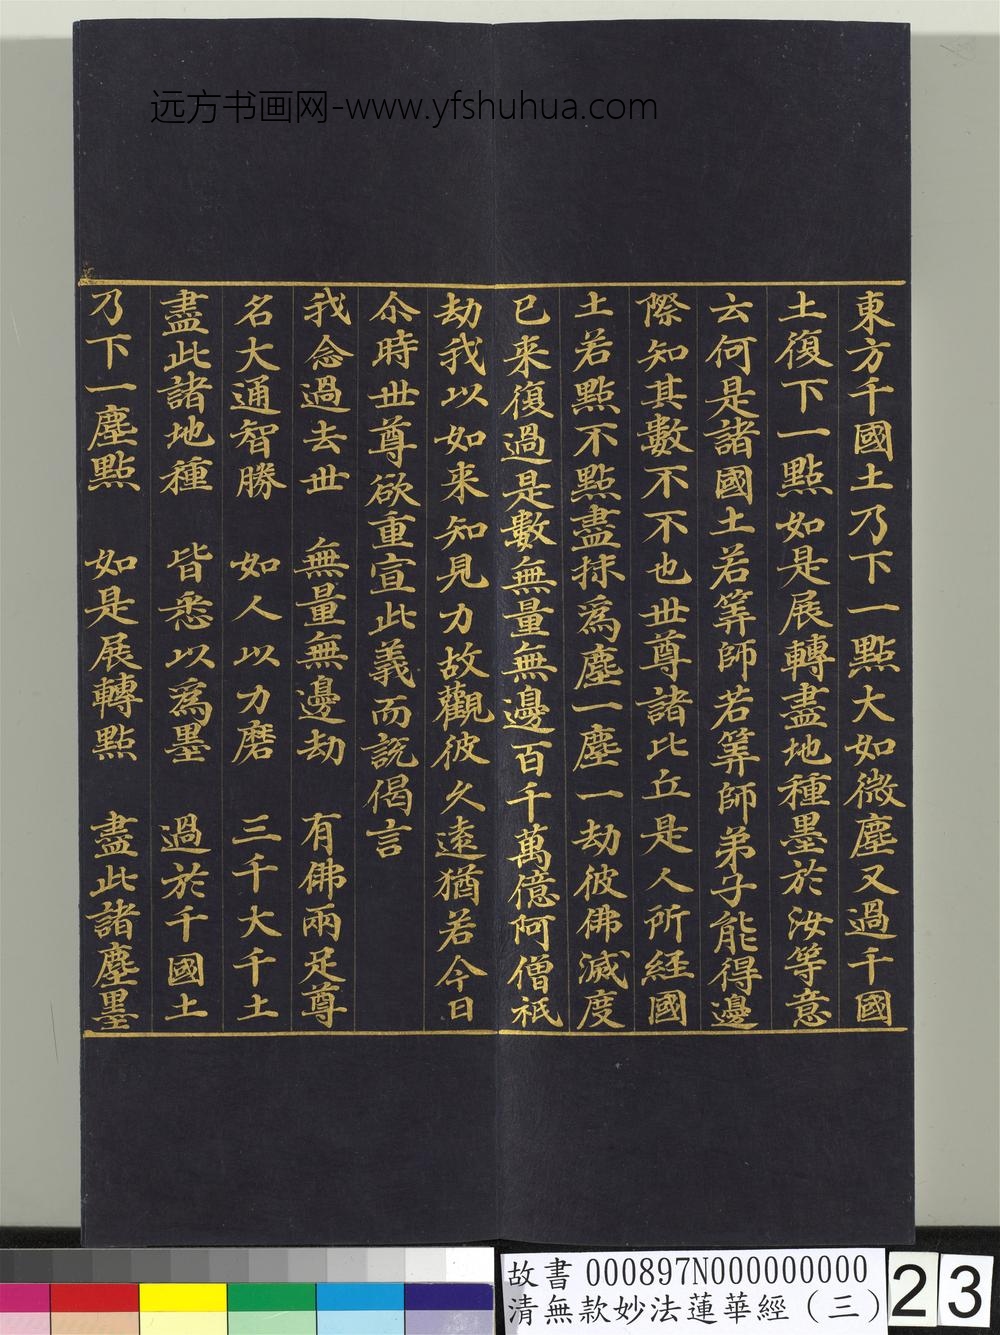 远方书画网-www.yfshuhua.com
東方千國土乃下一點大如微塵又過千國
土復下一點如是展轉盡地種墨於汝等意
云何是諸國土若筭師若筭師弟子能得邊
際知其數不不也世尊諸比丘是人所経國
土若點不點盡抹爲塵一塵一劫彼佛滅度
已来復過是數無量無邊百千萬億阿僧祇
劫我以如来知見力故觀彼久遠猶若今日
尒時世尊欲重宣此義而説偈言
我念過去世 無量無邊劫 有佛兩足尊
名大通智勝 如人以力磨 三千大千土
盡此諸地種 皆悉以爲墨 過於千國土
乃下一塵點 如是展轉點 盡此諸塵墨
故書 000897N000000000
清無款妙法蓮華經（三）
23